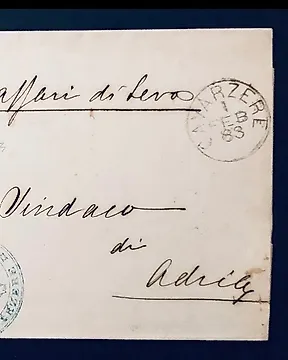 affari di Leva
CAVARZERE
1
FEB
83
Sindaco
di
Adria